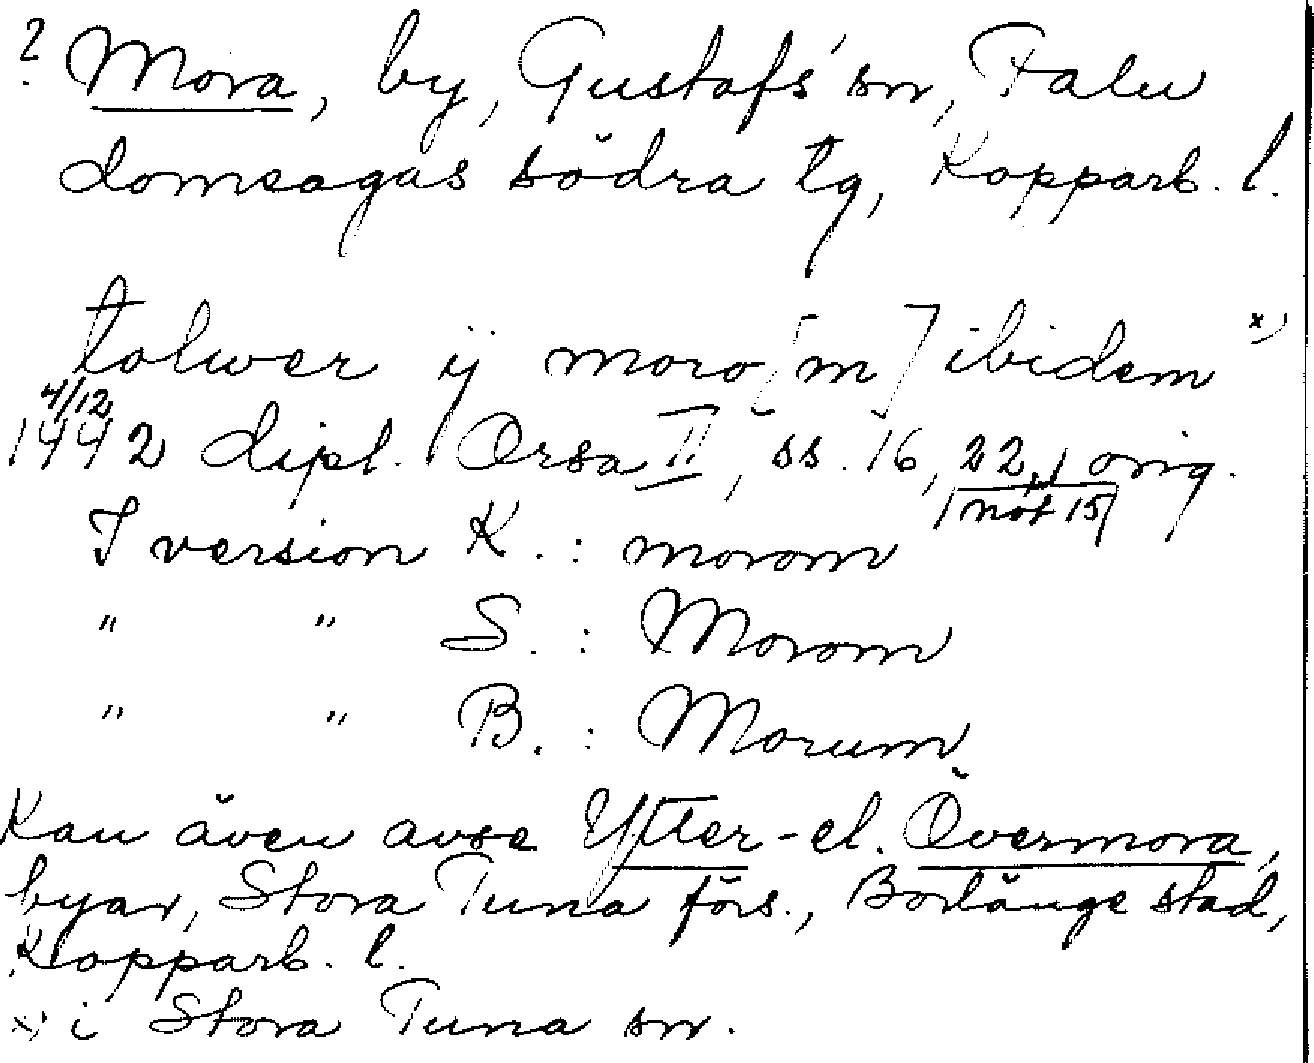 ? Mora, by, Gustafs' sn, Falu
domsagas södra tg, Kopparb. l.
tolwer ij moro[m] ibidem x)
4/12
1442 dipl. Orsa II, ss. 16, 22, orig.
not 15
I version K. : morom
" " S. : Morom
" " B. : Morum
Kan även avse Ytter- el. Övermora,
byar, Stora Tuna förs., Borlänge stad,
Kopparb. l.
x) i Stora Tuna sn.